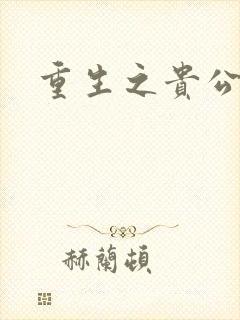 重生之貴公
赫蘭頓